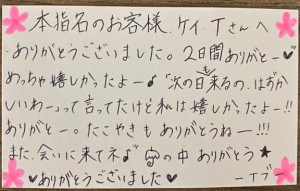 本指名のお客様.ケイ.Tさんへ
ありがとうございました。2日間ありがとー♥
めっちゃ嬉しかったよー♪「次の日も来るの、はずか
しいわー」って言ってたけど私は嬉しかったよー!!
ありがとー。たこやきもありがとうねー!!!
また、会いに来てネ♪ の中ありがとう★
♥ありがとうございました♥ ーTブー